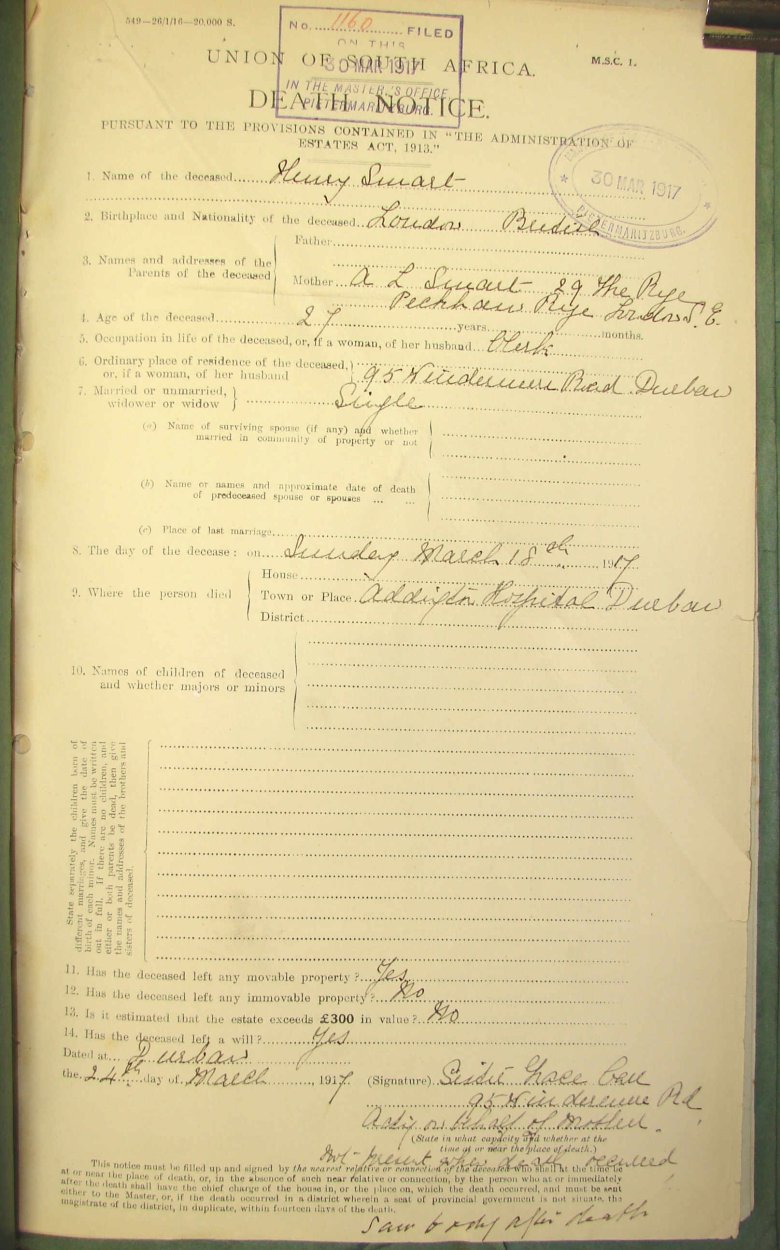 549—26/1/16—20,000 S.
No. 1160 FILED
ON THIS
30 MAR 1917
IN THE MASTER'S OFFICE
PIETERMARITZBURG.
UNION OF SOUTH AFRICA.
M.S.C. 1.
DEATH NOTICE.
PURSUANT TO THE PROVISIONS CONTAINED IN "THE ADMINISTRATION OF
ESTATES ACT, 1913."
30 MAR 1917
PIETERMARITZBURG.
1. Name of the deceased Henry Smart
2. Birthplace and Nationality of the deceased London British
3. Names and addresses of the Parents of the deceased
Father
Mother A L Smart 29 The Rye
Peckham Rye London S.E.
4. Age of the deceased 27 years months.
5. Occupation in life of the deceased, or, if a woman, of her husband Clerk
6. Ordinary place of residence of the deceased, or, if a woman, of her husband 95 Windermere Road Durban
7. Married or unmarried, widower or widow Single
(a) Name of surviving spouse (if any) and whether
married in community of property or not
(b) Name or names and approximate date of death
of predeceased spouse or spouses ... ...
(c) Place of last marriage
8. The day of the decease: on Sunday March 18th 1917
9. Where the person died
House
Town or Place Addington Hospital Durban
District
10. Names of children of deceased
and whether majors or minors
State separately the children born of
different marriages, and give the date of
birth of each minor. Names must be written
out in full. If there are no children, and
either or both parents be dead, then give
the names and addresses of the brothers and
sisters of deceased.
11. Has the deceased left any movable property? Yes
12. Has the deceased left any immovable property? No
13. Is it estimated that the estate exceeds £300 in value? No
14. Has the deceased left a will? Yes
Dated at Durban
the 24th day of March 1917 (Signature) Grace
95 Windermere Rd
Acting on behalf of Mother.
(State in what capacity and whether at the
time at or near the place of death.)
Not present when death occurred
This notice must be filled up and signed by the nearest relative or connection of the deceased who shall at the time be
at or near the place of death, or, in the absence of such near relative or connection, by the person who at or immediately
after the death shall have the chief charge of the house in, or the place on, which the death occurred, and must be sent
either to the Master, or, if the death occurred in a district wherein a seat of provincial government is not situate, the
magistrate of the district, in duplicate, within fourteen days of the death.
Saw body after death